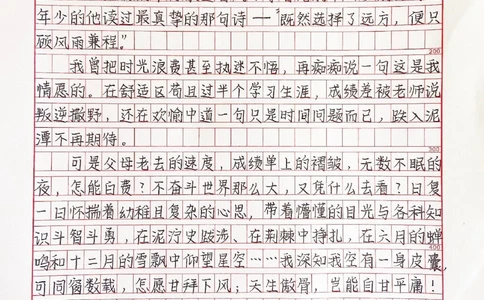 年少的他读过最真挚的那句诗——“既然选择了远方，便只
顾风雨兼程。”
200
我曾把时光浪费甚至执迷不悟，再痴痴说一句这是我
情愿的。在舒适区苟且过半个学习生涯，成绩差被老师说
叛逆撒野，还在欢愉中道一句只是时间问题而已，跌入泥
潭不再期待。
300
可是父母老去的速度，成绩单上的褶皱，无数不眠的
夜，怎能白费？不奋斗世界那么大，又凭什么去看？日复
一日怀揣着幼稚且复杂的心思，带着懵懂的目光与各科知
识斗智斗勇，在泥泞史跋涉、在荆棘中挣扎，在六月的蝉
400
鸣和十二月的雪飘中仰望星空……我深知我空有一身皮囊，
可同窗数载，怎愿甘拜下风；天生傲骨，岂能自甘平庸！